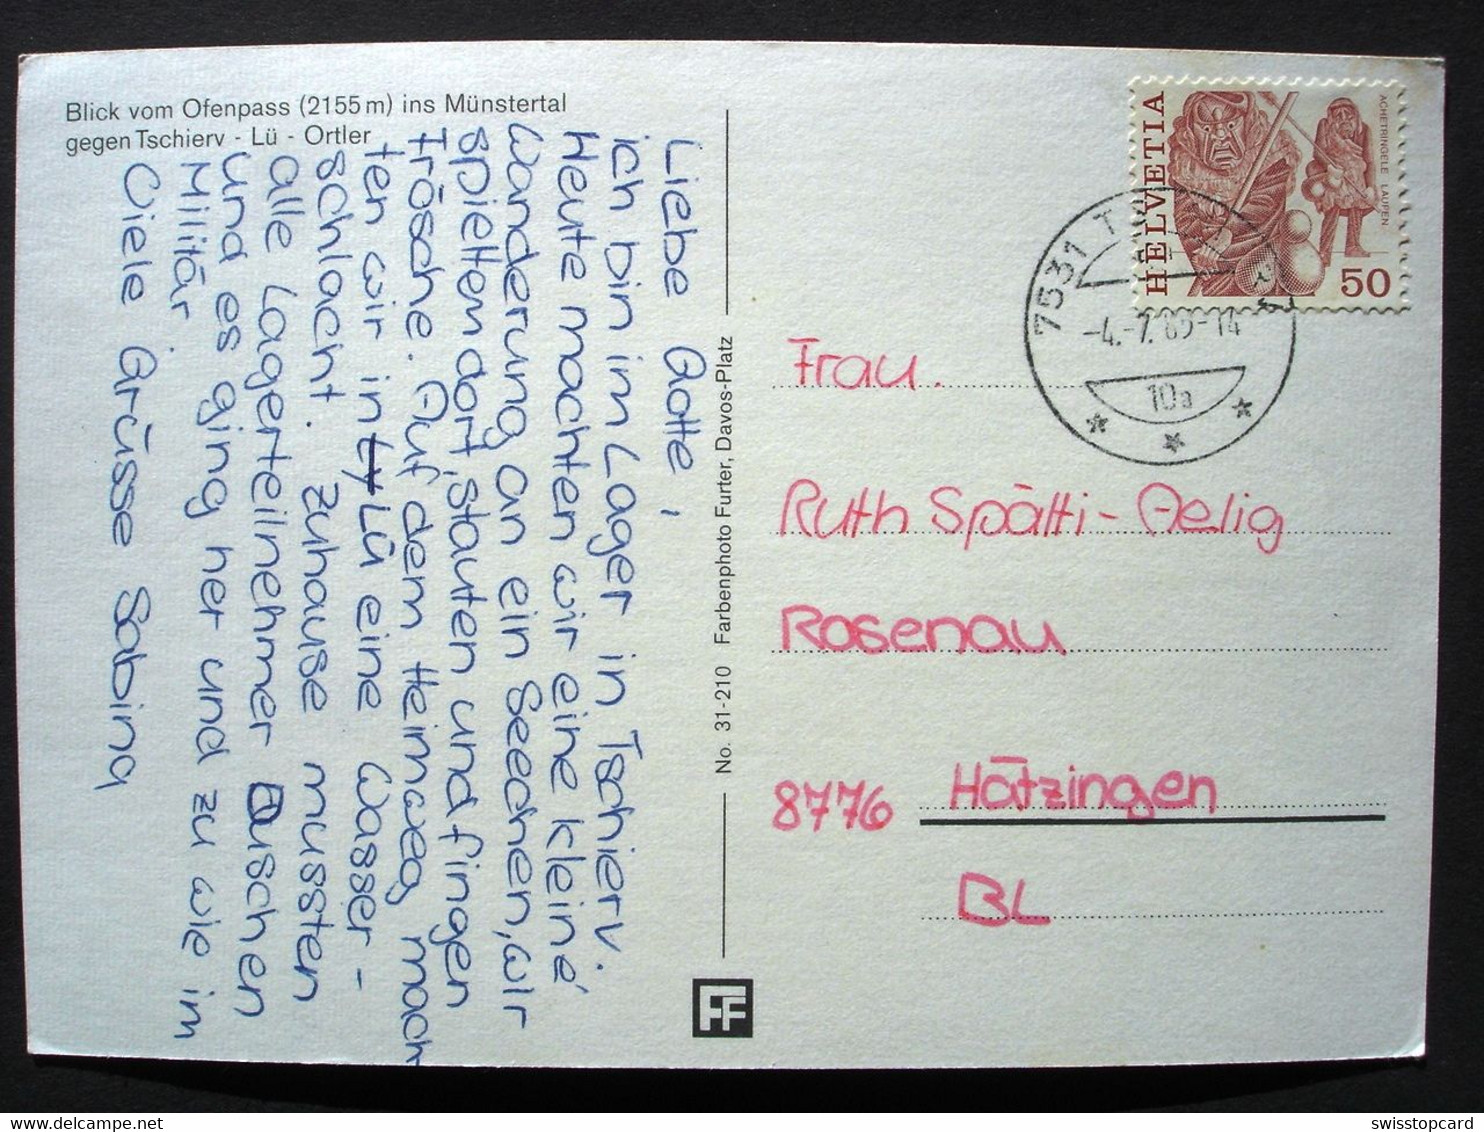 Blick vom Ofenpass (2155 m) ins Münstertal
gegen Tschierv - Lü - Ortler
Liebe Gotte,
ich bin im Lager in Tschierv.
Heute machten wir eine kleine
Wanderung an ein Seechen, wir
spielten dort, stauten und fingen
Frösche. Auf dem Heimweg mach
ten wir in Lü eine Wasser-
schlacht. Zuhause mussten
alle Lagerteilnehmer Duschen
und es ging her und zu wie im
Militär
Viele Grüsse Sabina
No. 31-210 Farbenphoto Furter, Davos-Platz
FF
HELVETIA
ACHETRINGELE LAUPEN
50
7531
-4.-7.85-14
10a
Frau.
Ruth Spälti-Aelig
Rosenau
8776 Hätzingen
BL
swisstopcard